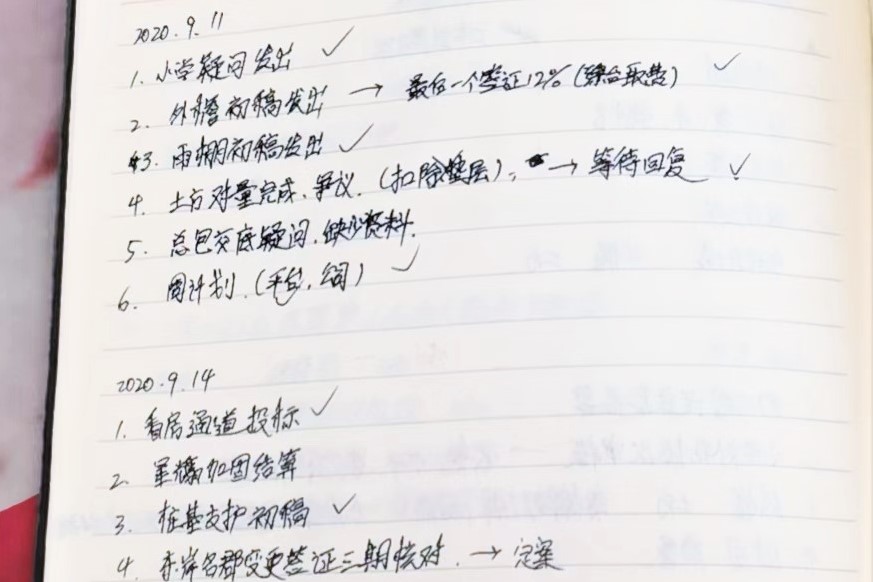 2020.9.11
1. 小学疑问发出 ✓
2. 外墙初稿发出 → 最后一个签证12%(综合取费) ✓
3. 雨棚初稿发出 ✓
4. 土方对量完成、争议.(扣除垫层), → 等待回复 ✓
5. 总包交底疑问.缺少资料.
6. 周计划.(平台,公司) ✓
2020.9.14
1. 看房通道投标 ✓
2. 军橘加固结算
3. 桩基支护初稿 ✓
4. 东岸名郡变更签证三期核对. → 定案